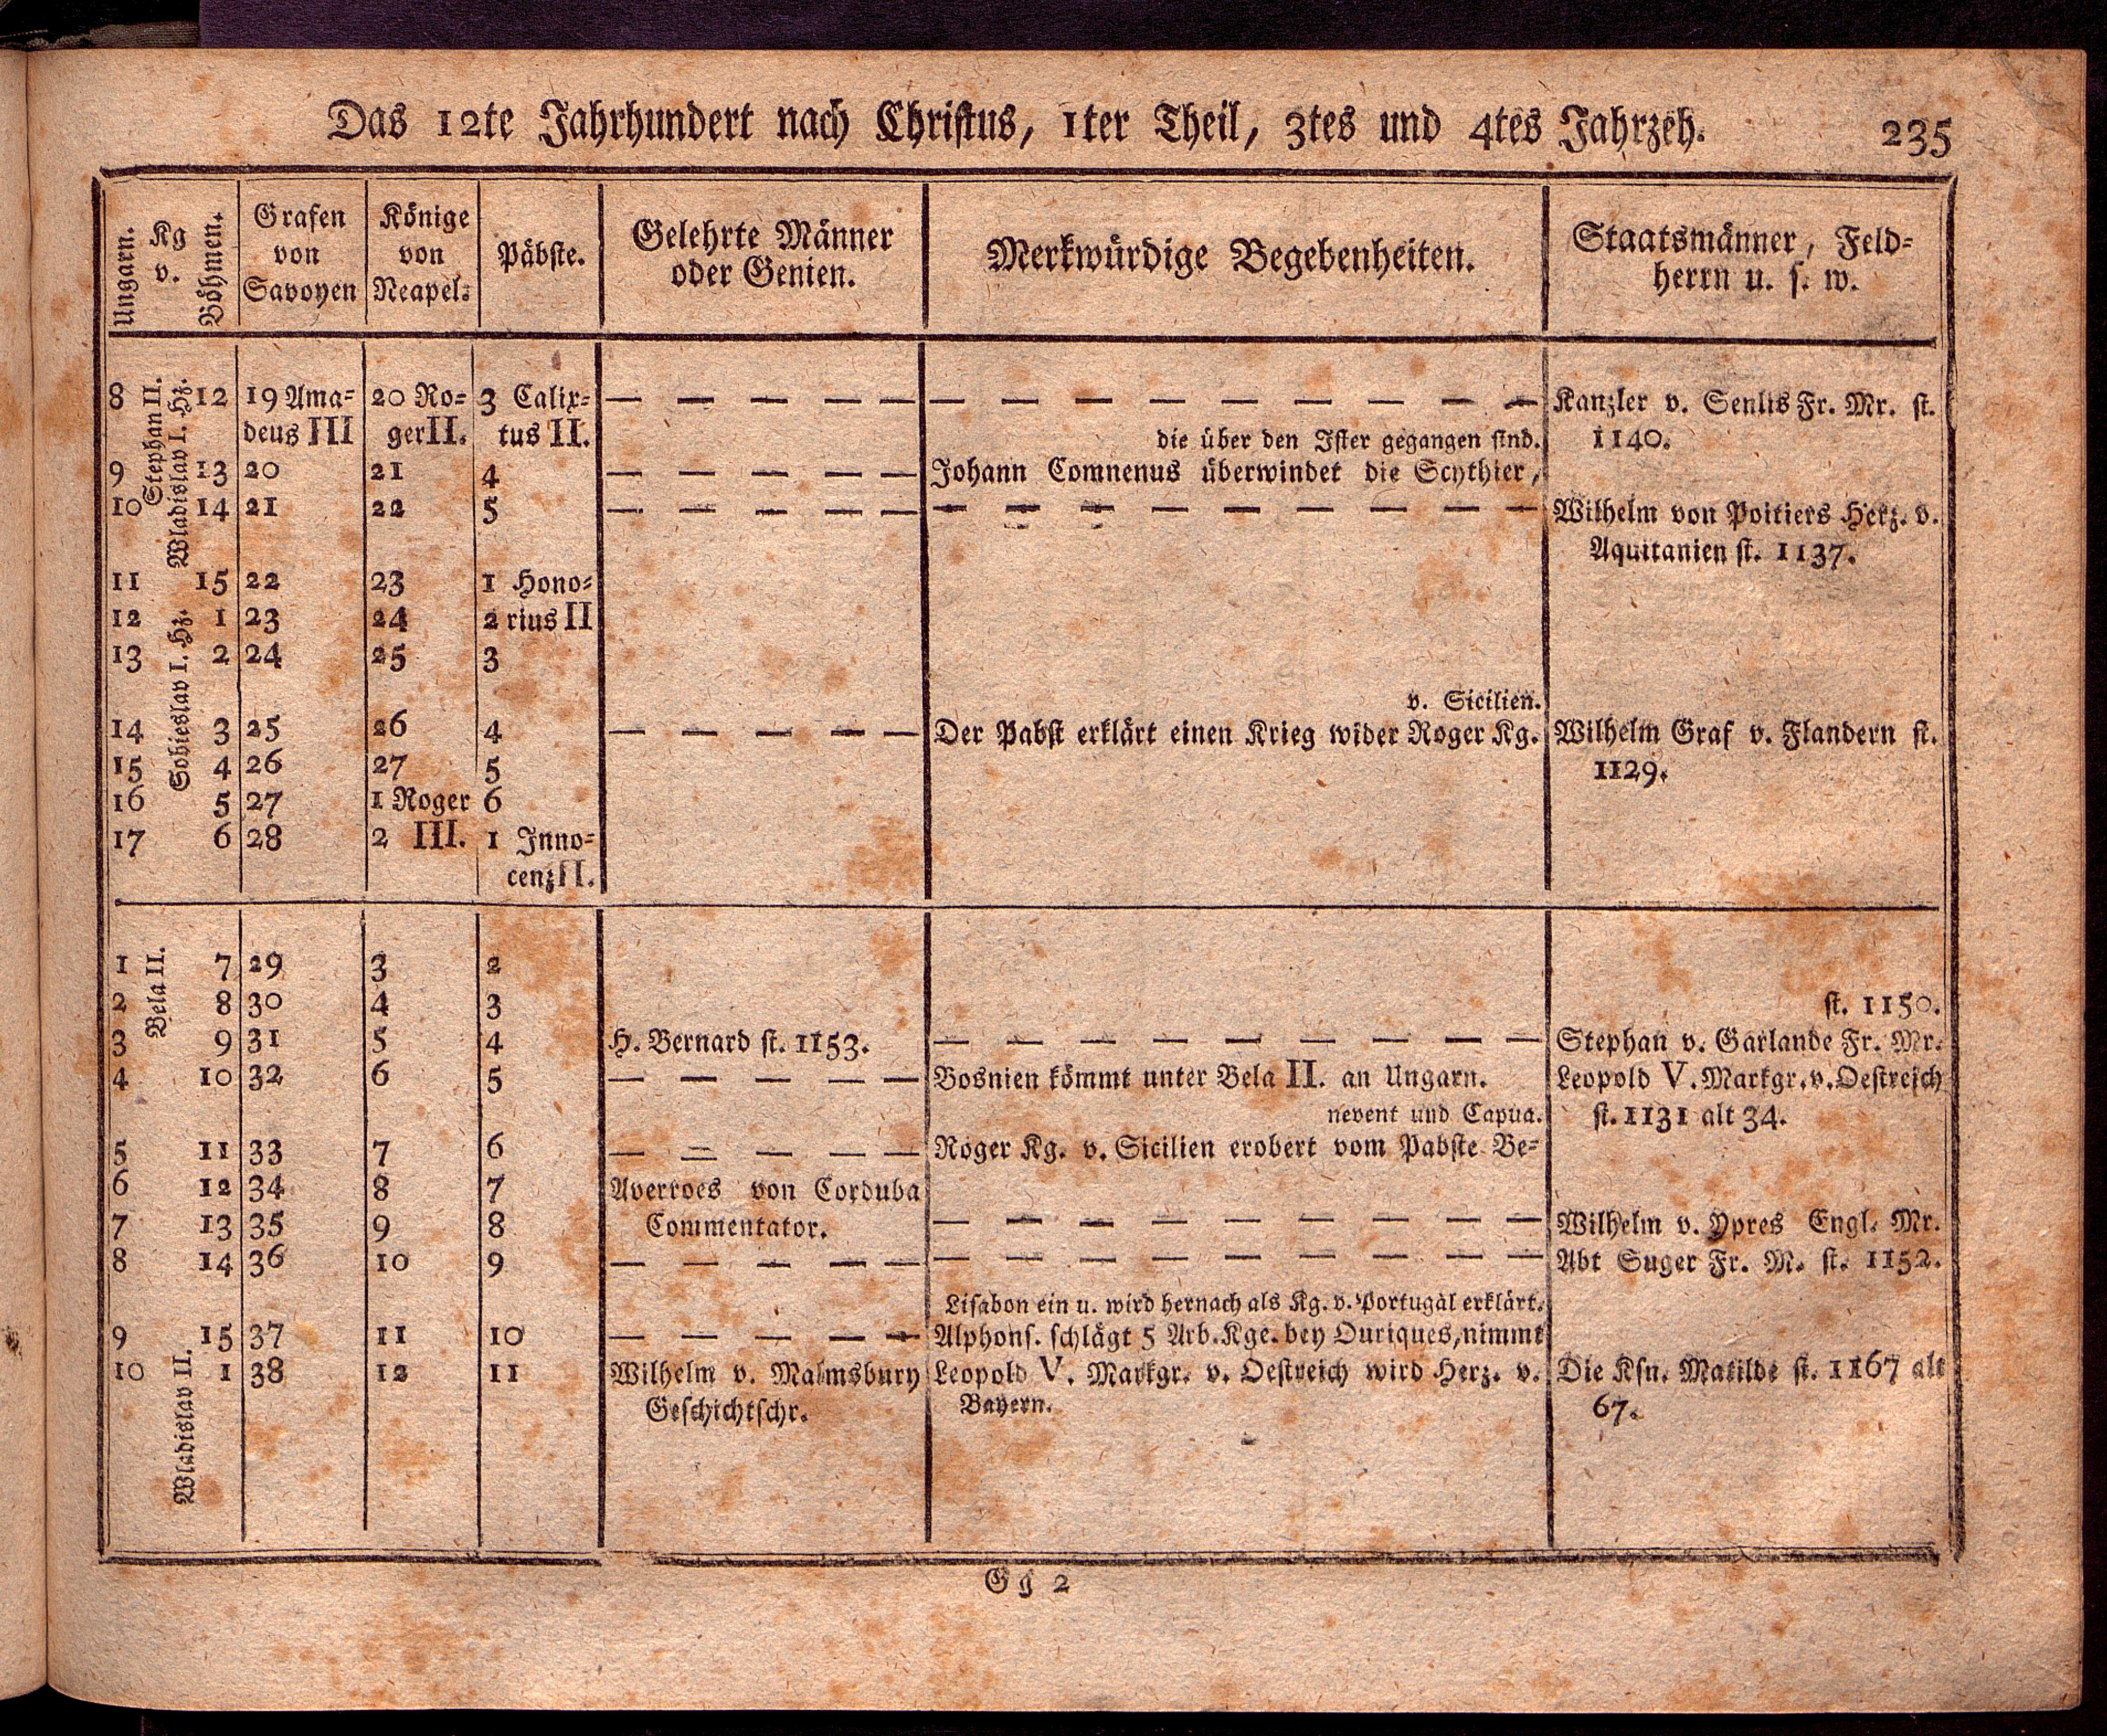 Das 12te Jahrhundert nach Christus, 1ter Theil, 3tes und 4tes Jahrzeh. 235
Ungarn.
Kg
v.
Böhmen.
Grafen
von
Savoyen
Könige
von
Neapel.
Päbste.
Gelehrte Männer
oder Genien.
Merkwürdige Begebenheiten.
Staatsmänner, Feld-
herrn u. s. w.
Stephan II.
Wladislav I. Hz.
Sobieslav I. Hz.
8 12 19 Ama- 20 Ro- 3 Calix- — — — — — — — — — — — — — Kanzler v. Senlis Fr. Mr. st.
deus III ger II. tus II. die über den Ister gegangen sind. 1140.
9 13 20 21 4 — — — — — Johann Comnenus überwindet die Scythier,
10 14 21 22 5 — — — — — — — — — — — — — Wilhelm von Poitiers Herz. v.
Aquitanien st. 1137.
11 15 22 23 1 Hono-
12 1 23 24 2 rius II
13 2 24 25 3
v. Sicilien.
14 3 25 26 4 — — — — — Der Pabst erklärt einen Krieg wider Roger Kg. Wilhelm Graf v. Flandern st.
15 4 26 27 5 1129.
16 5 27 1 Roger 6
17 6 28 2 III. 1 Inno-
cenz II.
Bela II.
Wladislav II.
1 7 29 3 2
2 8 30 4 3 st. 1150.
3 9 31 5 4 H. Bernard st. 1153. — — — — — — — — Stephan v. Garlande Fr. Mr.
4 10 32 6 5 — — — — — Bosnien kömmt unter Bela II. an Ungarn. Leopold V. Markgr. v. Oestreich
nevent und Capua. st. 1131 alt 34.
5 11 33 7 6 — — — — — Roger Kg. v. Sicilien erobert vom Pabste Be-
6 12 34 8 7 Averroes von Corduba
7 13 35 9 8 Commentator. — — — — — — — — Wilhelm v. Ypres Engl. Mr.
8 14 36 10 9 — — — — — — — — — — — — — Abt Suger Fr. M. st. 1152.
Lisabon ein u. wird hernach als Kg. v. Portugal erklärt.
9 15 37 11 10 — — — — — Alphons. schlägt 5 Arb. Kge. bey Ouriques, nimmt
10 1 38 12 11 Wilhelm v. Malmsbury Leopold V. Markgr. v. Oestreich wird Herz. v. Die Ksn. Matilde st. 1167 alt
Geschichtschr. Bayern. 67.
Gg 2